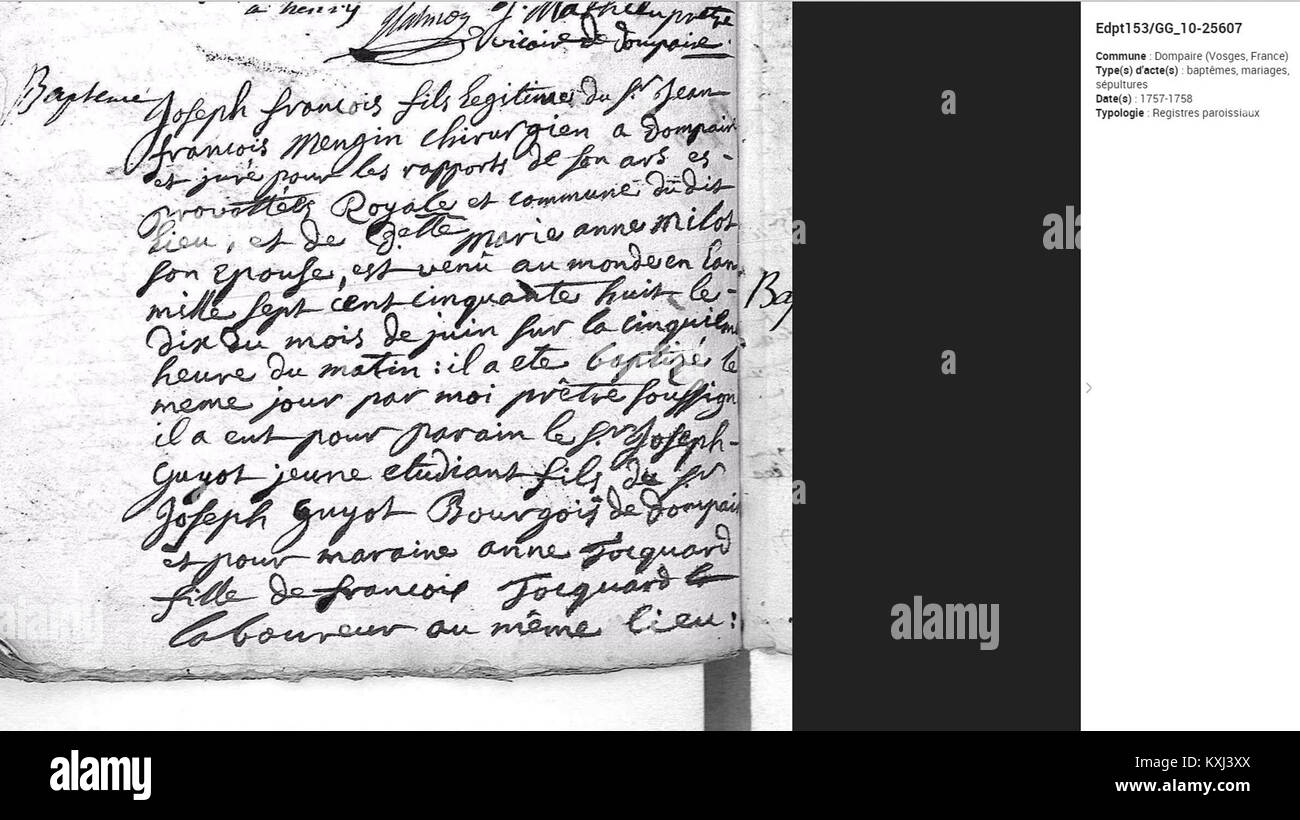 a henry
J. Mathieu prêtre
vicaire de dompaire.
Bapteme
Joseph francois fils legitime du Sr. Jean
francois Mengin chirurgien a Dompair
et juré pour les rapports de son ars es-
provottés Royale et commune dudit
lieu, et de Delle Marie anne Milot
son Epouse, est venu au monde en Lan
mille sept cent cinquante huit le-
dix du mois de juin sur la cinquiem
heure du matin : il a ete baptizé le
meme jour par moi prêtre soussign
il a eut pour parain le Sr. Joseph-
Guyot jeune etudiant fils du Sr.
Joseph Guyot Bourgois de dompair
et pour maraine anne Jocquard
fille de francois Jocquard le
laboureur au même lieu :
Ba
Edpt153/GG_10-25607
Commune : Dompaire (Vosges, France)
Type(s) d'acte(s) : baptêmes, mariages,
sépultures
Date(s) : 1757-1758
Typologie : Registres paroissiaux
a
a
a
a
alamy
alamy
alamy
Image ID: KXJ3XX
www.alamy.com